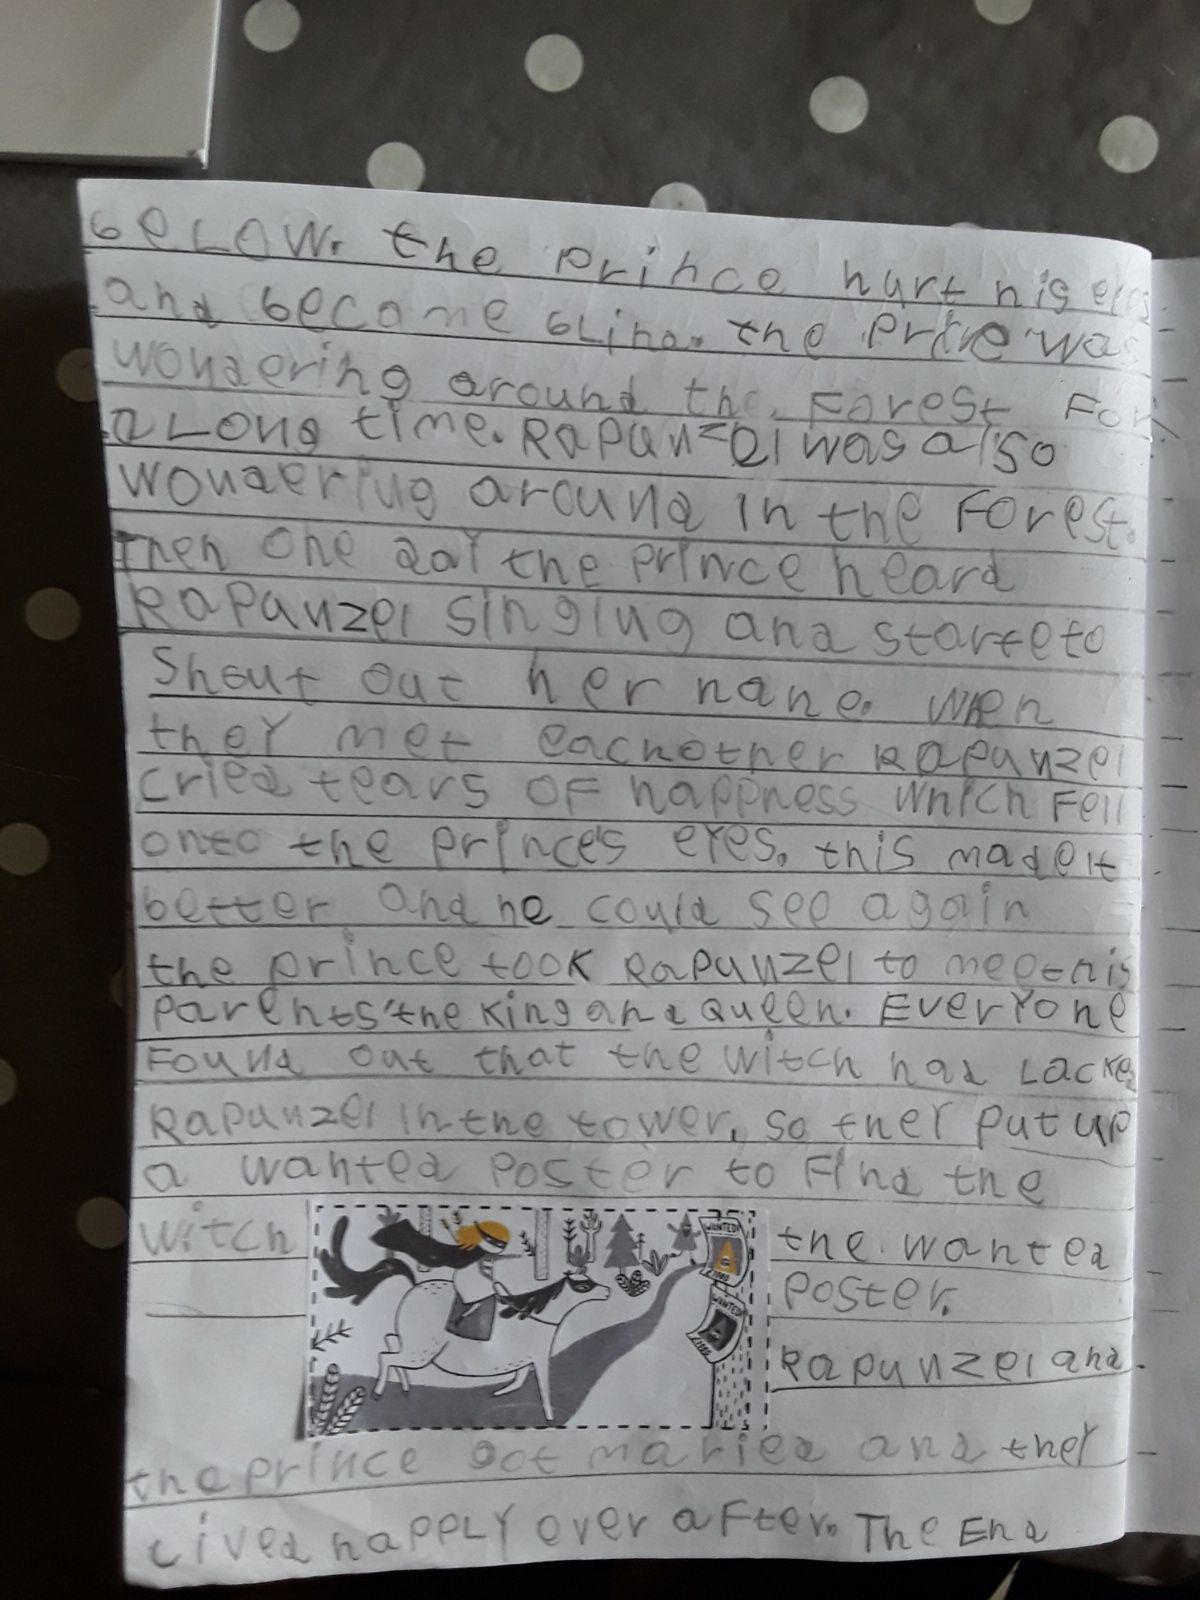 below. the prince hurt his eyes
and become blind. the prire was
wondering around the forest For
a Long time. Rapanzel was also
wonderiug around in the Forest.
then one day the prince heard
Rapanzel singiug and starteto
Shout out her nane. when
they met eachother Rapanzel
cried tears of happness which Fell
onto the prince's eyes. this made it
better and he could see again
the prince took Rapanzel to meet his
parents' the King and Queen. Everyone
Found out that the witch had Lacked
Rapanzel in the tower, so they put up
a wanted poster to find the
witch
WANTED!
WANTED!
the wanted
poster.
Rapanzel and.
the prince got maried and they
Lived happLy over after. The End